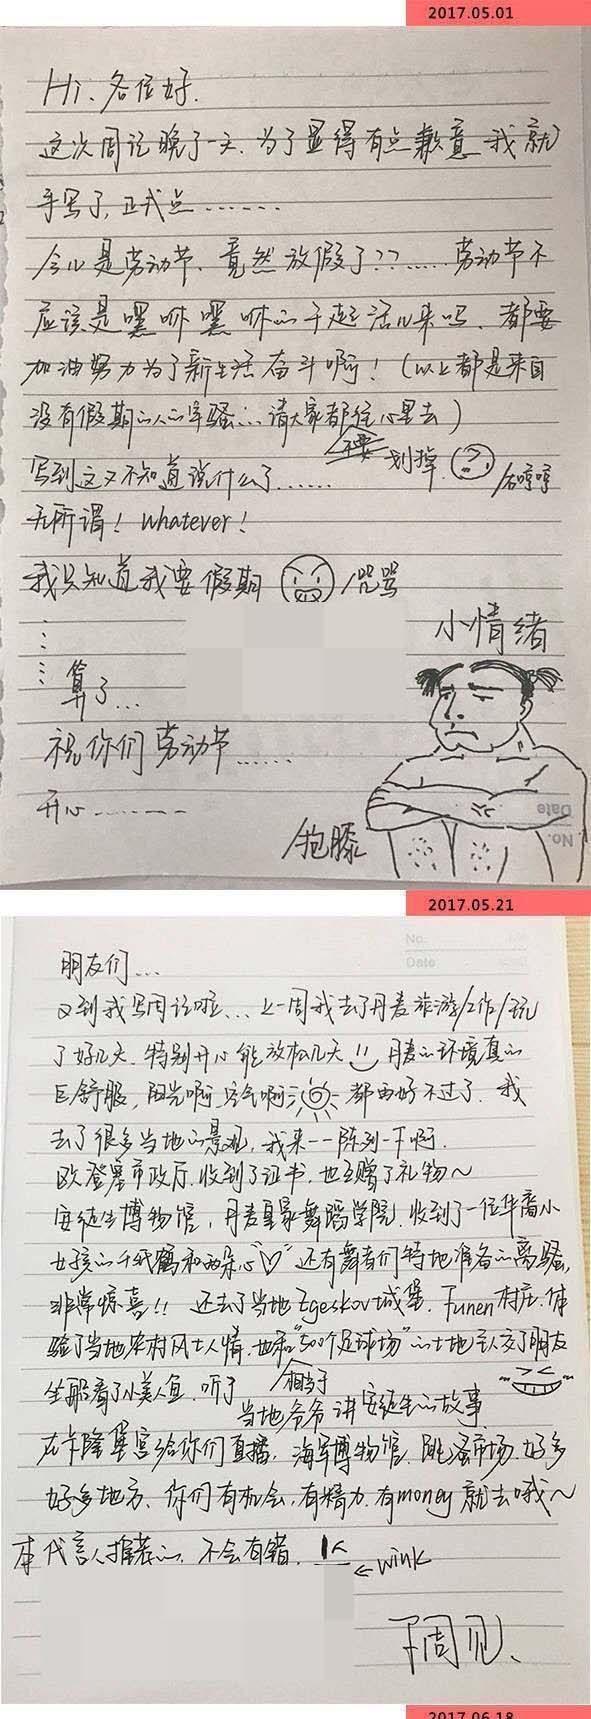 2017.05.01
Hi、各位好.
这次周记晚了一天.为了显得有点歉意 我就
手写了,正式点......
今儿是劳动节、竟然放假了??......劳动节不
应该是嘿咻嘿咻的干起活儿来吗、都要
加油努力为了新生活奋斗啊!(以上都是来自
没有假期的人的牢骚...请大家都往心里去)
不要 划掉.
写到这又不知道说什么了...... /石哼哼
无所谓! Whatever!
我只知道我要假期 /咒骂
小情绪
算了...
祝你们劳动节......
开心.......
/抱膝
Date
No.
2017.05.21
No.
Date
朋友们...
又到我写周记啦...上一周我去了丹麦旅游/工作/玩
了好几天.特别开心能放松几天 丹麦的环境真的
巨舒服,阳光啊,空气啊 都由好不过了.我
去了很多当地的景观,我来一一陈列一下啊.
欧登塞市政厅.收到了证书.也互赠了礼物~
安徒生博物馆,丹麦皇家舞蹈学院.收到了一位华裔小
女孩的千纸鹤和两朵心"♡" 还有舞者们特地准备的离骚,
非常惊喜!! 还去了当地Egeskov城堡.Funen村庄.体
验了当地农村风土人情.也和"500个足球场"的土地主人交了朋友
相当于
坐船看了小美人鱼.听了当地爷爷讲安徒生的故事
在卡隆堡宫给你们直播,海军博物馆.跳蚤市场.好多
好多地方、你们有机会,有精力.有money就去哦~
本代言人推荐的、不会有错. ←wink
下周见、
2017.06.18